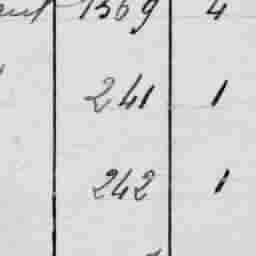 1369 4
241 1
242 1